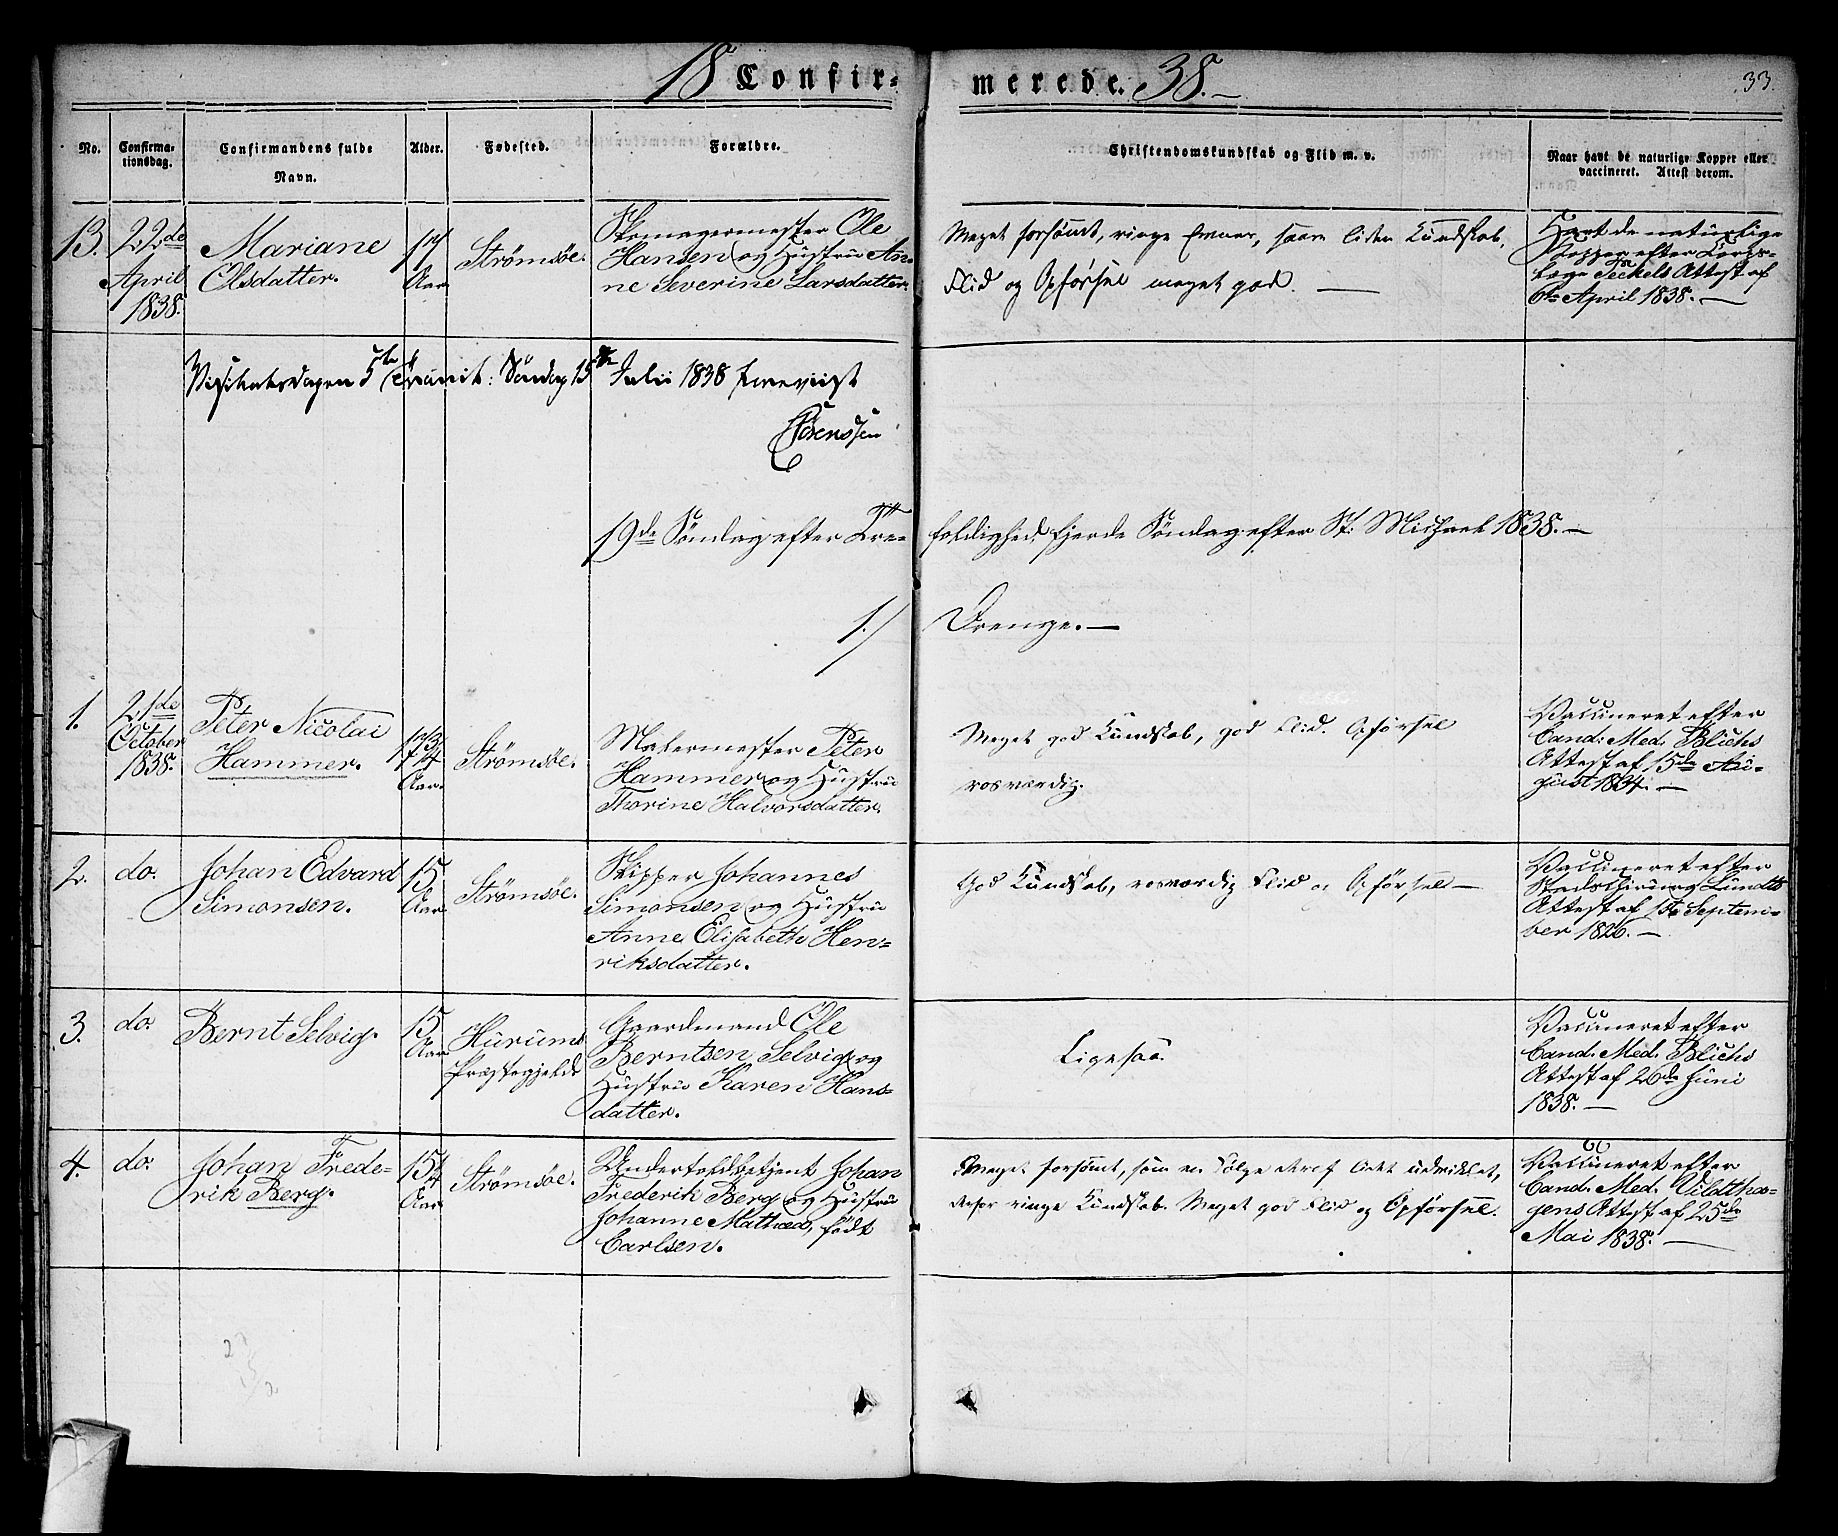 18 Confir-
merede. 38.
33.
No.
Confirma-
tionsdag.
Confirmandens fulde
Navn.
Alder.
Fødested.
Forældre.
Christendomskundskab og Flid m. v.
Naar havt de naturlige Kopper eller
vaccineret. Attest derom.
13.
22de
April
1838.
Mariane
Olsdatter.
17
Aar
Strömsöe.
Skomagermester Ole
Hansen og Hustru An-
ne Severine Larsdatter.
Meget forsömt, ringe Evner, saare liden Kundskab,
Flid og Opførsel meget god. —
Havt de naturlige
Kopper efter Corps-
læge Seckels Attest af
6te April 1838. —
Visitatsdagen 5te Trinit: Søndag 15de Julii 1838 foreviist
Sörenssen
19de Söndag efter Tre-
foldighed, fjerde Söndag efter St: Michael 1838. —
1./
Drenge. —
1.
21de
October
1838.
Peter Nicolai
Hammer.
17 3/4
Aar.
Strömsöe.
Malermester Peter
Hammer og Hustru
Thorine Halvorsdatter.
Meget god Kundskab, god Flid. Opførsel
rosværdig.
Vaccineret efter
Cand: Med: Blichs
Attest af 15de Au-
gust 1834. —
2.
do.
Johan Edvard
Simonsen.
15
Aar.
Strömsöe.
Skipper Johannes
Simonsen og Hustru
Anne Elisabeth Hen-
riksdatter.
God Kundskab, rosværdig Flid og Opførsel —
Vaccineret efter
Stadschirurg Lundts
Attest af 1ste Septem-
ber 1826. —
3.
do.
Bernt Selvig.
15
Aar
Hurums
Præstegjeld
Gaardmand Ole
Berntsen Selvig og
Hustru Karen Hans-
datter.
Ligesaa.
Vaccineret efter
Cand: Med: Blichs
Attest af 26de Juni
1838. —
4.
do.
Johan Frede-
rik Berg.
15 1/4
Aar
Strömsöe.
Undertoldbetjent Johan
Frederik Berg og Hustru
Johanne Mathea, født
Carlsen.
Meget forsömt, som en Følge deraf lidet udviklet,
derfor ringe Kundskab. Meget god Flid og Opførsel.
Vaccineret efter
Cand: Med: Vildtha-
gens Attest af 25de
Mai 1838. —